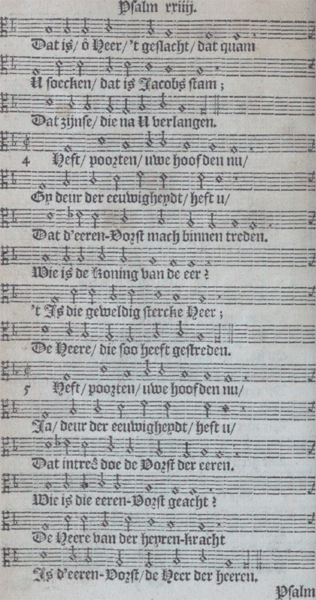 Psalm xxiiij.
Dat is/ ô Heer/ 't geslacht/ dat quam
U soecken/ dat is Jacobs stam;
Dat zijnse/ die na U verlangen.
4 Heft/ poorten/ uwe hoofden nu/
Gy deur der eeuwigheydt/ heft u/
Dat d'eeren-Vorst mach binnen treden.
Wie is de Koning van de eer?
't Is die geweldig stercke Heer;
De Heere/ die soo heeft gestreden.
5 Heft/ poorten/ uwe hoofden nu/
Ja/ deur der eeuwigheydt/ heft u/
Dat intreê doe de Vorst der eeren.
Wie is die eeren-Vorst geacht?
De Heere van der heyren-kracht
Is d'eeren-Vorst/ de Heer der heeren.
Psalm